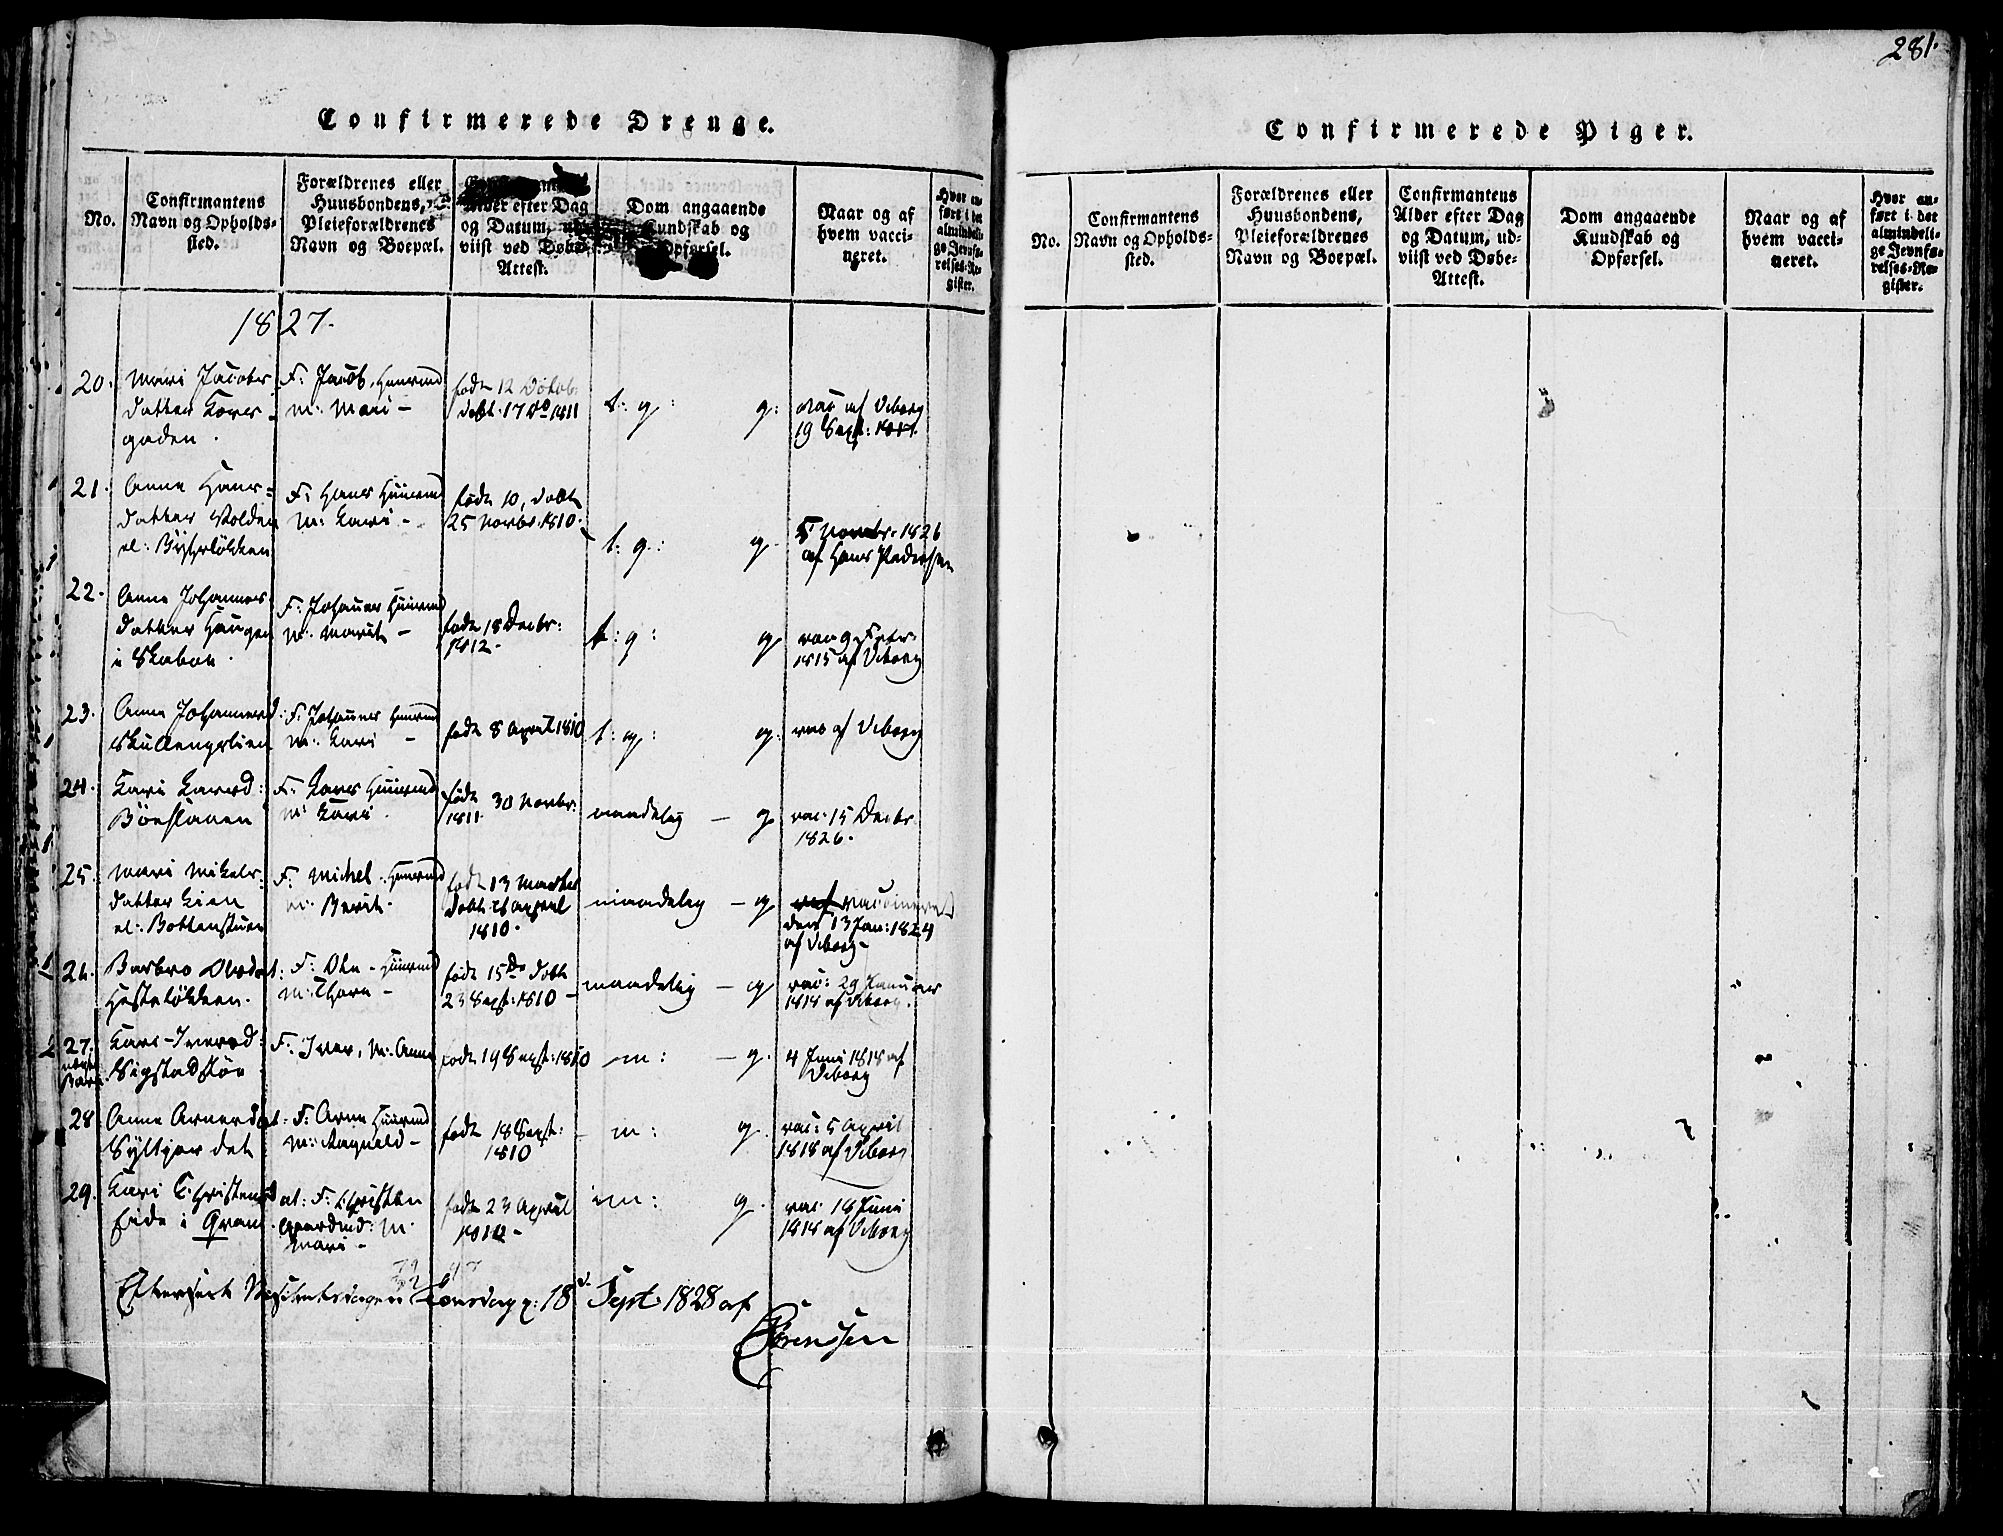 281.
Confirmerede Drenge.
No.
Confirmantens
Navn og Opholds-
sted.
Forældrenes eller
Huusbondens,
Pleieforældrenes
Navn og Boepæl.
Alder efter Dag
og Datum, ud-
viist ved Døbe-
Attest.
Dom angaaende
Kundskab og
Opførsel.
Naar og af
hvem vacci-
neret.
Hvor an-
ført i det
almindeli-
ge Jevnfø-
relses-Re-
gister.
1827.
20.
Mari Jacobs-
datter Kors-
gaden.
F: Jacob, Huusmd
M: Mari -
født 12 Octob:
døbt 17 do 1811
t: g: g:
vac af Viborg
19 Sept: 1817.
21.
Anne Hans-
datter Volden
F: Hans Huusmd
M: Kari -
født 10, døbt
25 Novbr. 1810.
t: g: g.
5 Novbr. 1826
af Hans Pedersen
22.
Anne Johannes-
datter Haugen
i Skaboe.
F: Johannes Huusmd
M: Marit -
født 18 Decbr:
1812.
t: g: g
vac 9 Febr:
1815 af Viborg
23.
Anne Johannesd:
F: Johannes Huusmd
M: Kari -
født 8 April 1810
t: g: g:
vac af Viborg
24.
Kari Larsd:
F: Lars Huusmd
M: Kari.
født 30 Novbr:
1811.
maadelig - g
vac: 15 Decbr.
1826.
25.
Mari Mikels-
datter Lien
el: Bottenstuen
F: Michel Huusmd
M: Berit.
født 13 Martes
døbt 26 April
1810.
maadelig - g
vaccineret
den 13 Jan: 1824
af Viborg -
26.
Barbro Olesdat:
F: Ole - Huusmd
M: Thore -
født 15de døbt
23 Sept: 1810 -
maadelig - g
vac: 29 Januar
1818 af Viborg.
27.
Kari Iversd:
Sigstadstøe
F: Iver, M: Anne
født 19 Sept: 1810
m: - g.
4 Juni 1818 af
Viborg
28
Anne Arnesdat:
F: Arne Huusmd
M: Ragnild -
født 18 Sept:
1810
- m: g.
vac: 5 April
1818 af Viborg
29.
Kari Christensd
Eide i Qvam.
at: F: Christen
Gaardmd: M.
Mari -
født 23 April
m: g.
vac. 18 Juni
1818 af Viborg
Efterseet Visitatsdagen Torsdag d: 18d Sept. 1828 af
Sørenssen
Confirmerede Piger.
No.
Confirmantens
Navn og Opholds-
sted.
Forældrenes eller
Huusbondens,
Pleieforældrenes
Navn og Boepæl.
Confirmantens
Alder efter Dag
og Datum, ud-
viist ved Døbe-
Attest.
Dom angaaende
Kundskab og
Opførsel.
Naar og af
hvem vacci-
neret.
Hvor an-
ført i det
almindeli-
ge Jevnfø-
relses-Re-
gister.